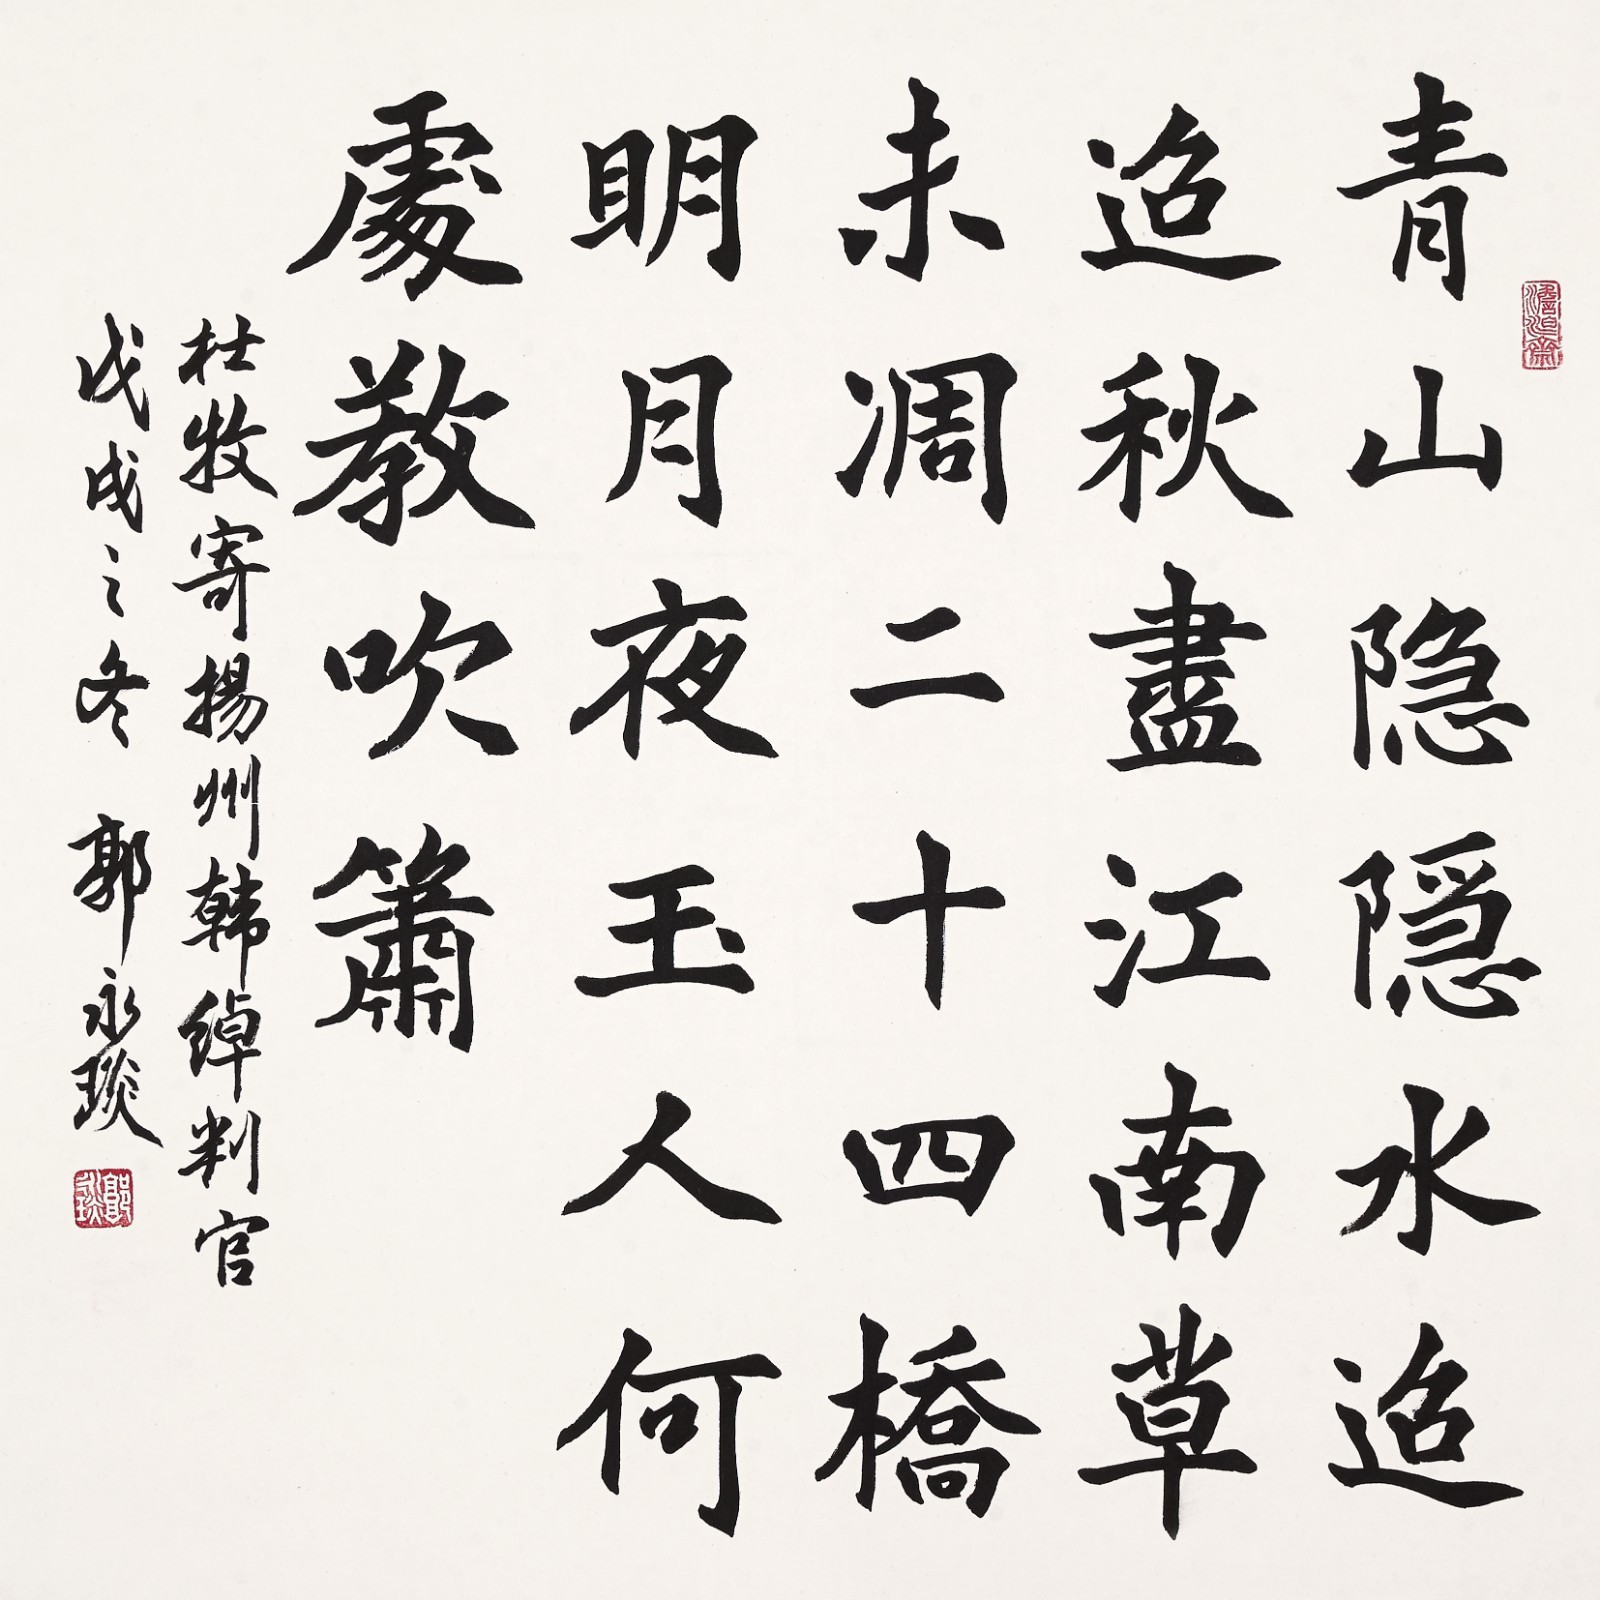 青山隐隱水迢
迢秋盡江南草
未凋二十四橋
明月夜玉人何
處教吹簫
杜牧寄揚州韓綽判官
戊戌之冬 郭永琰
郭永琰